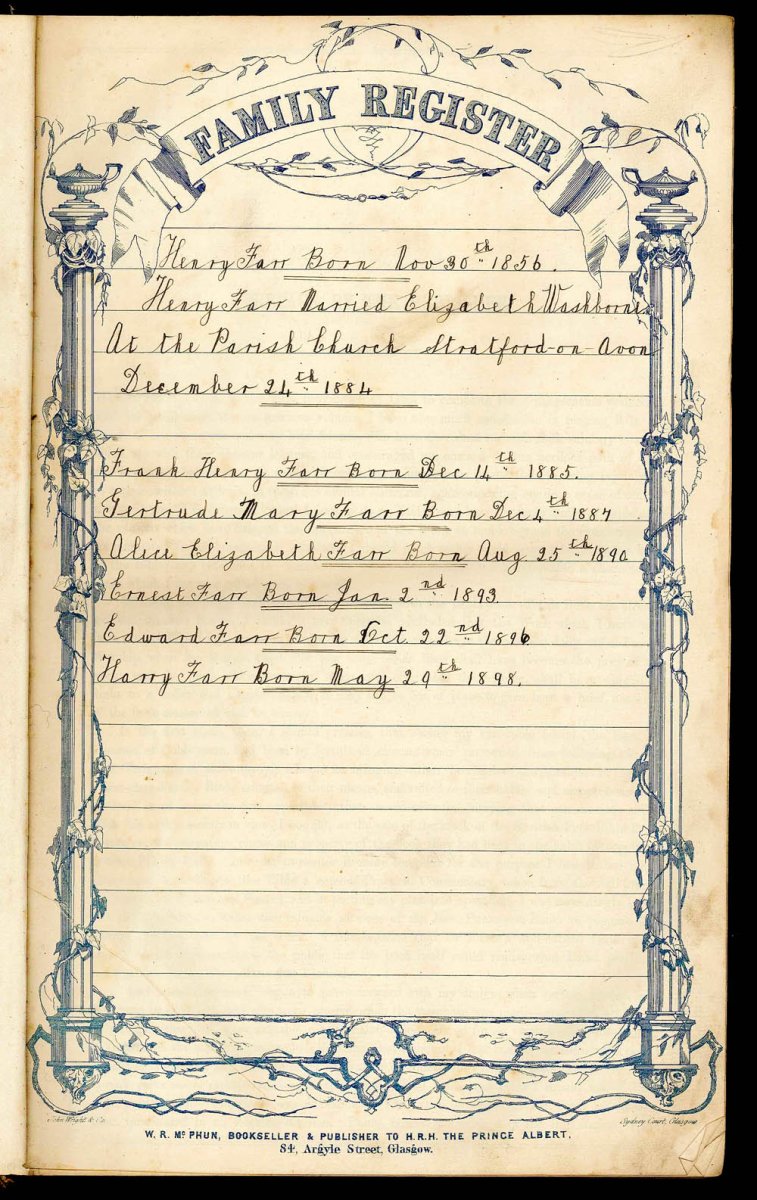 FAMILY REGISTER
Henry Farr Born Nov 30th 1856.
Henry Farr Married Elizabeth Washborne
At the Parish Church Stratford-on-Avon
December 24th 1884
Frank Henry Farr Born Dec 14th 1885.
Gertrude Mary Farr Born Dec 4th 1887
Alice Elizabeth Farr Born Aug. 25th 1890
Ernest Farr Born Jan. 2nd 1893.
Edward Farr Born Oct. 22nd 1896
Harry Farr Born May 29th 1898.
John Wright & Co. Sydney Court, Glasgow
W. R. McPHUN, BOOKSELLER & PUBLISHER TO H.R.H. THE PRINCE ALBERT.
84, Argyle Street, Glasgow.